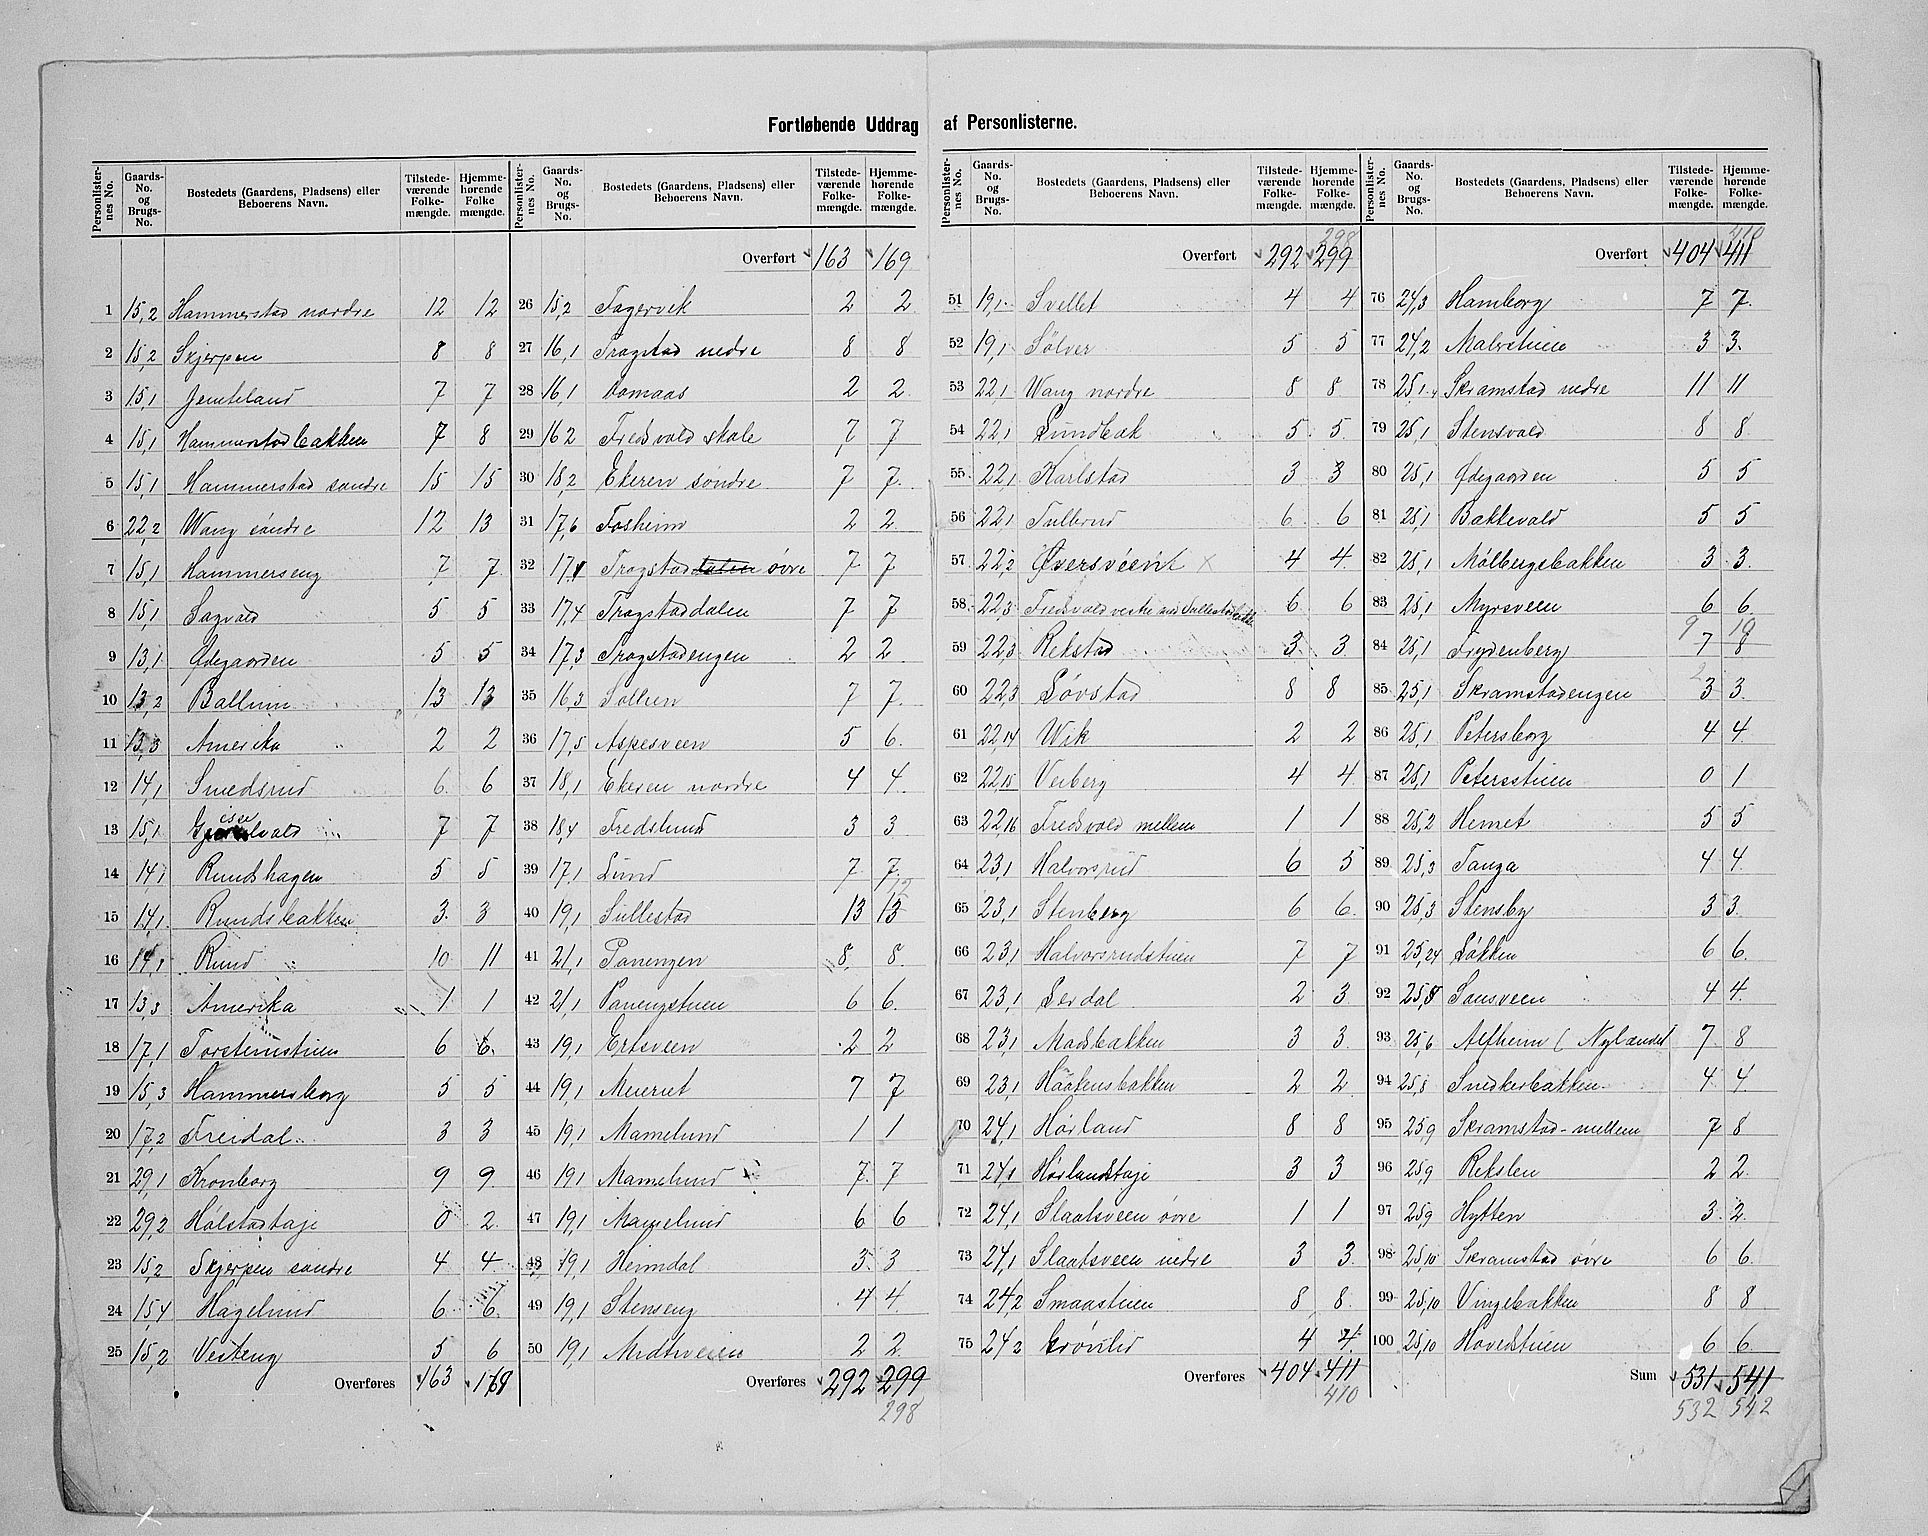 Fortløbende Uddrag af Personlisternes.
Personlisternes No. Gaards-No. og Brugs-No. Bostedets (Gaardens, Pladsens) eller Beboerens Navn. Tilstedeværende Folkemængde. Hjemmehørende Folkemængde.
1 15,2 Hammerstad nordre 12 12
2 15,2 Skjerpen 8 8
3 15,1 Jemteland 7 7
4 15,1 Hammerstadbakken 7 8
5 15,1 Hammerstad søndre 15 15
6 22,2 Wang søndre 12 13
7 15,1 Hammerseng 7 7
8 15,1 Sagvold 5 5
9 13,1 Ødegaarden 5 5
10 13,2 Ballrim 13 13
11 13,3 Amerika 2 2
12 14,1 Smedsrud 6 6
13 15,1 7 7
14 14,1 Rundshagen 5 5
15 14,1 Rundsbakken 3 3
16 14,1 Rund 10 11
17 13,3 Amerika 1 1
18 17,1 Torsteinstuen 6 6
19 15,3 Hammersborg 5 5
20 17,2 Freidal 3 3
21 29,1 Kronborg 9 9
22 29,2 Hølstadtaje 0 2
23 15,2 Skjerpen søndre 4 4
24 15,4 Hagelund 6 6
25 15,2 Vesteng 5 6
Overføres 163 169
Personlisternes No. Gaards-No. og Brugs-No. Bostedets (Gaardens, Pladsens) eller Beboerens Navn. Tilstedeværende Folkemængde. Hjemmehørende Folkemængde.
Overført 163 169
26 15,2 Fagervik 2 2
27 16,1 Tragstad nedre 8 8
28 16,1 Aamaas 2 2
29 16 2 Fredsvold skole 7 7
30 18,2 Ekeren søndre 7 7
31 17,6 Fosheim 2 2
32 17,1 Tragstad dalen øvre 7 7
33 17,4 Tragstaddalen 7 7
34 17,3 Tragstadengen 2 2
35 16,3 Sollien 7 7
36 17,5 Aspesveen 5 6
37 18,1 Ekeren nordre 4 4
38 18,4 Fredslund 3 3
39 17,1 Lund 7 7
12
40 19,1 Sullestad 13 13
41 21,1 Panengen 8 8
42 21,1 Panengstuen 6 6
43 19,1 Ertsveen 2 2
44 19,1 Meieriet 7 7
45 19,1 Mamelund 1 1
46 19,1 Mamelund 7 7
47 19,1 Mamelund 6 6
48 19,1 Heimdal 3 3
49 19,1 Stenseng 4 4
50 19,1 2 2
Overføres 292 299
298
Personlisternes No. Gaards-No. og Brugs-No. Bostedets (Gaardens, Pladsens) eller Beboerens Navn. Tilstedeværende Folkemængde. Hjemmehørende Folkemængde.
298
Overført 292 299
51 19,1 Svellet 4 4
52 19,1 Sølver 5 5
53 22,1 Wang nordre 8 8
54 22,1 Lundbæk 5 5
55 22,1 Karlstad 3 3
56 22,1 Tullerud 6 6
57 22,2 Øversveevit × 4 4
58 22,3 Fredsvold vestre med Sullestadbakk. 6 6
59 22,3 Rekstad 3 3
60 22,3 Løvstad 8 8
61 22,14 Wik 2 2
62 22,15 Veiberg 4 4
63 22,16 Fredsvold mellem 1 1
64 23,1 Halvorsrud 6 5
65 23,1 Stenberg 6 6
66 23,1 Halvorsrudstuen 7 7
67 23,1 Lerdal 2 3
68 23,1 Madsbakken 3 3
69 23,1 Haakensbakken 2 2
70 24,1 Hørland 8 8
71 24,1 Hørlandstaje 3 3
72 24,1 Slaatsveen øvre 1 1
73 24,1 Slaatsveen nedre 3 3
74 24,2 Smaastuen 8 8
75 24,2 Grønlid 4 4
Overføres 404 411
410
Personlisternes No. Gaards-No. og Brugs-No. Bostedets (Gaardens, Pladsens) eller Beboerens Navn. Tilstedeværende Folkemængde. Hjemmehørende Folkemængde.
410
Overført 404 411
76 24,3 Hamborg 7 7
77 24,2 Malvstuen 3 3
78 25,1 Skramstad nedre 11 11
79 25,1 Stensvold 8 8
80 25,1 Ødegaarden 5 5
81 25,1 Bakkevold 5 5
82 25,1 Mølbergsbakken 3 3
83 25,1 Myrsveen 6 6
9 10
84 25,1 Frydenberg 7 8
2
85 25,1 Skramstadengen 3 3
86 25,1 Petersborg 4 4
87 25,1 Petersstuen 0 1
88 25,2 Hemet 5 5
89 25,3 Tanga 4 4
90 25,3 Stensby 3 3
91 25,24 Løkken 6 6
92 25, Sausveen 4 4
93 25,6 Alfheim (Nylændet 7 8
94 25,8 Snekkerbakken 4 4
95 25,9 Skramstad-mellem 7 8
96 25,9 Rekslen 2 2
97 25,9 Hytten 3 2
98 25,10 Skramstad øvre 6 6
99 25,10 Vingebakken 8 8
100 25,10 Hovedstuen 6 6
Sum 531 541
532 542